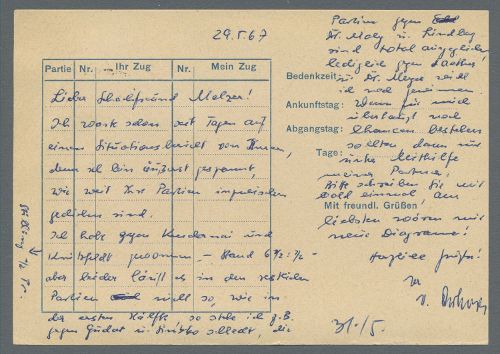 29.5.67
Partie Nr. Ihr Zug Nr. Mein Zug
Lieber Schachfreund Melzer!
Ich warte schon seit Tagen auf
einen Situationsbericht von Ihnen,
denn ich bin äußerst gespannt,
wie weit Ihre Partien inzwischen
gediehen sind.
Ich habe gegen und
gewonnen, - Stand 6½:2½ -
aber leider läuft es in den restlichen
Partien nicht so, wie in
der ersten Hälfte, so stehe ich z.B.
gegen und schlecht, die
Partien gegen
Dr. Moly u. Lindley
sind total ausgeglichen
lediglich gegen
Bedenkzeit:
u. Dr. Meyer will
ich noch gewinnen.
Ankunftstag:
Wenn für mich
überhaupt noch
Abgangstag:
Chancen bestehen
sollten dann nur
Tage:
unter Mithilfe
meiner Partner.
Bitte schreiben Sie mir
bald einmal, am
Mit freundl. Grüßen!
liebsten wären mir
neue Diagramme!
Herzliche Grüße!
Ihr
v.
31./5.